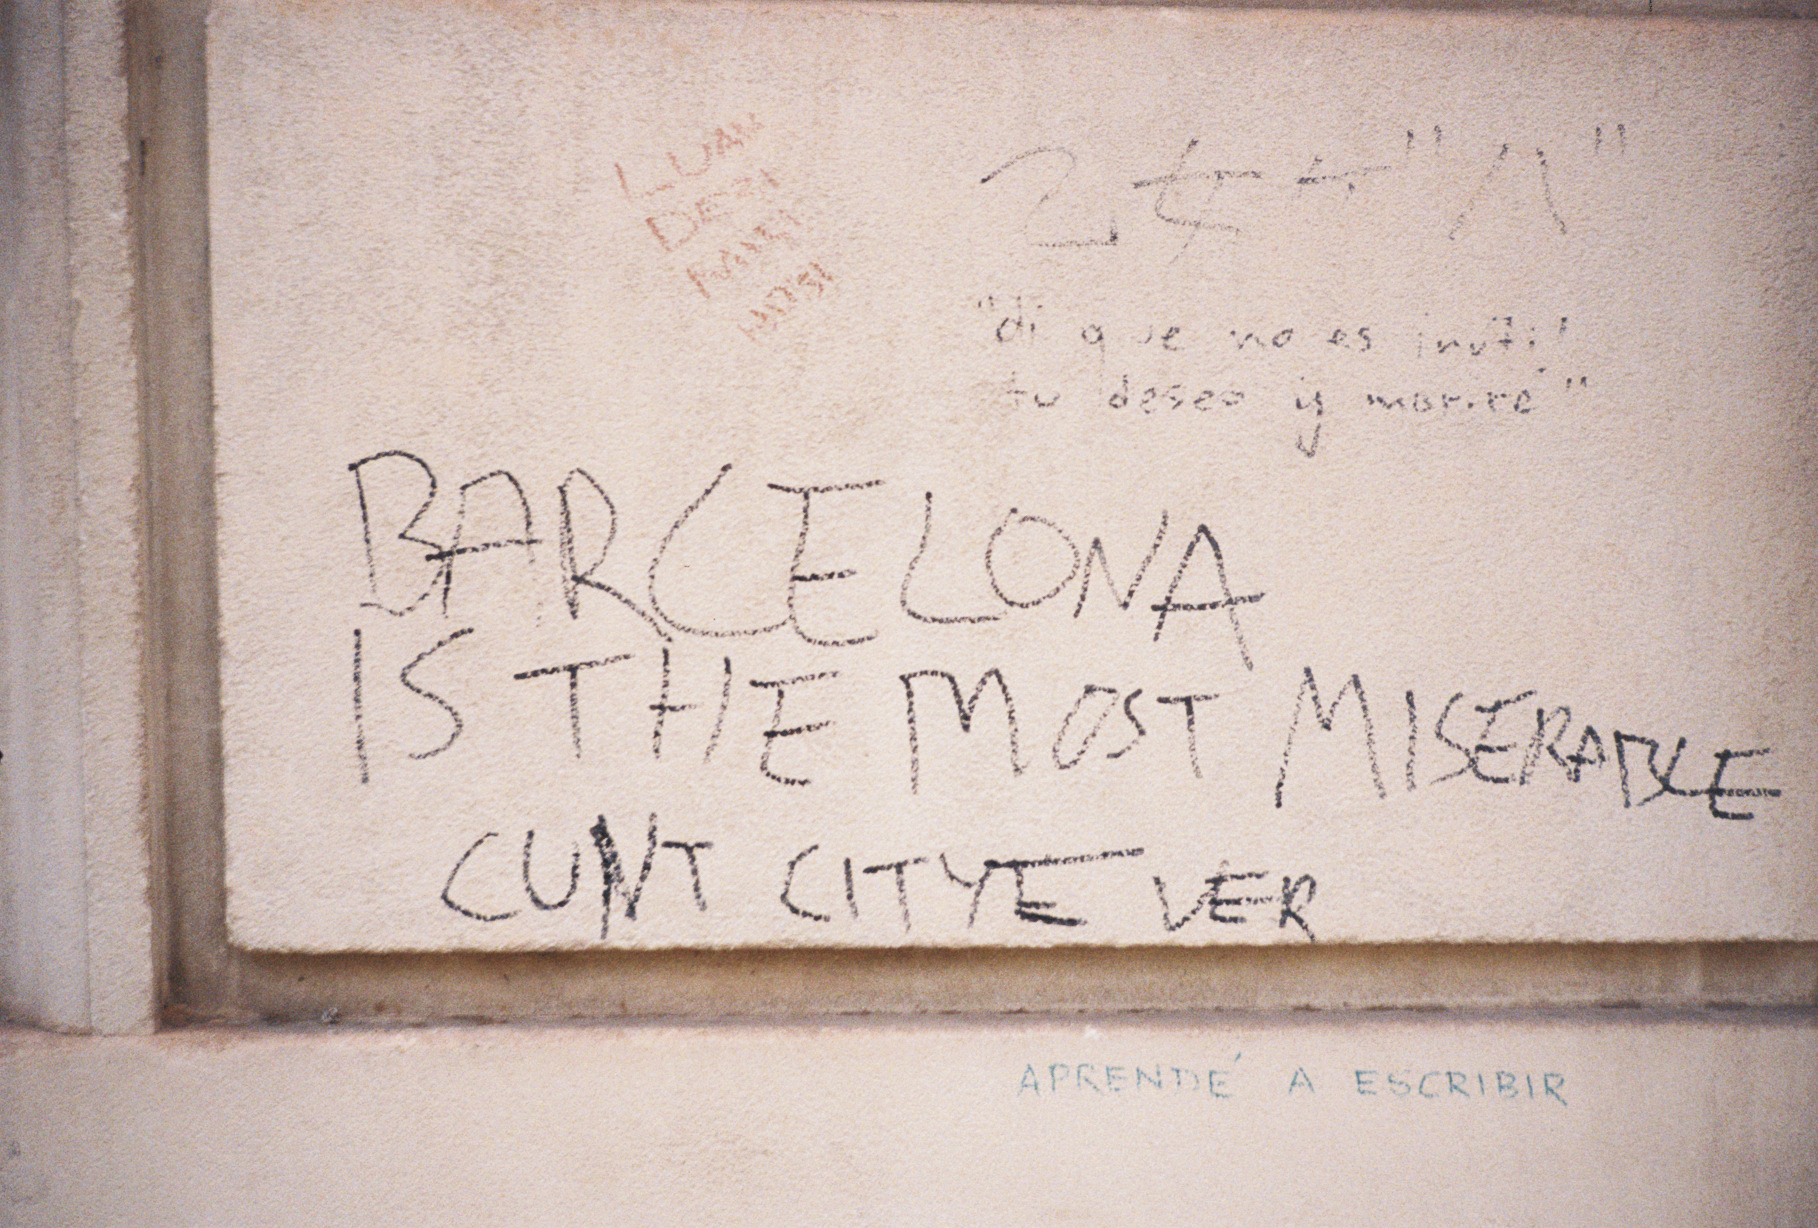 LUAN
"di que no es inútil
tu deseo y moriré"
BARCELONA
IS THE MOST MISERABLE
CUNT CITYE VER
APRENDÉ A ESCRIBIR